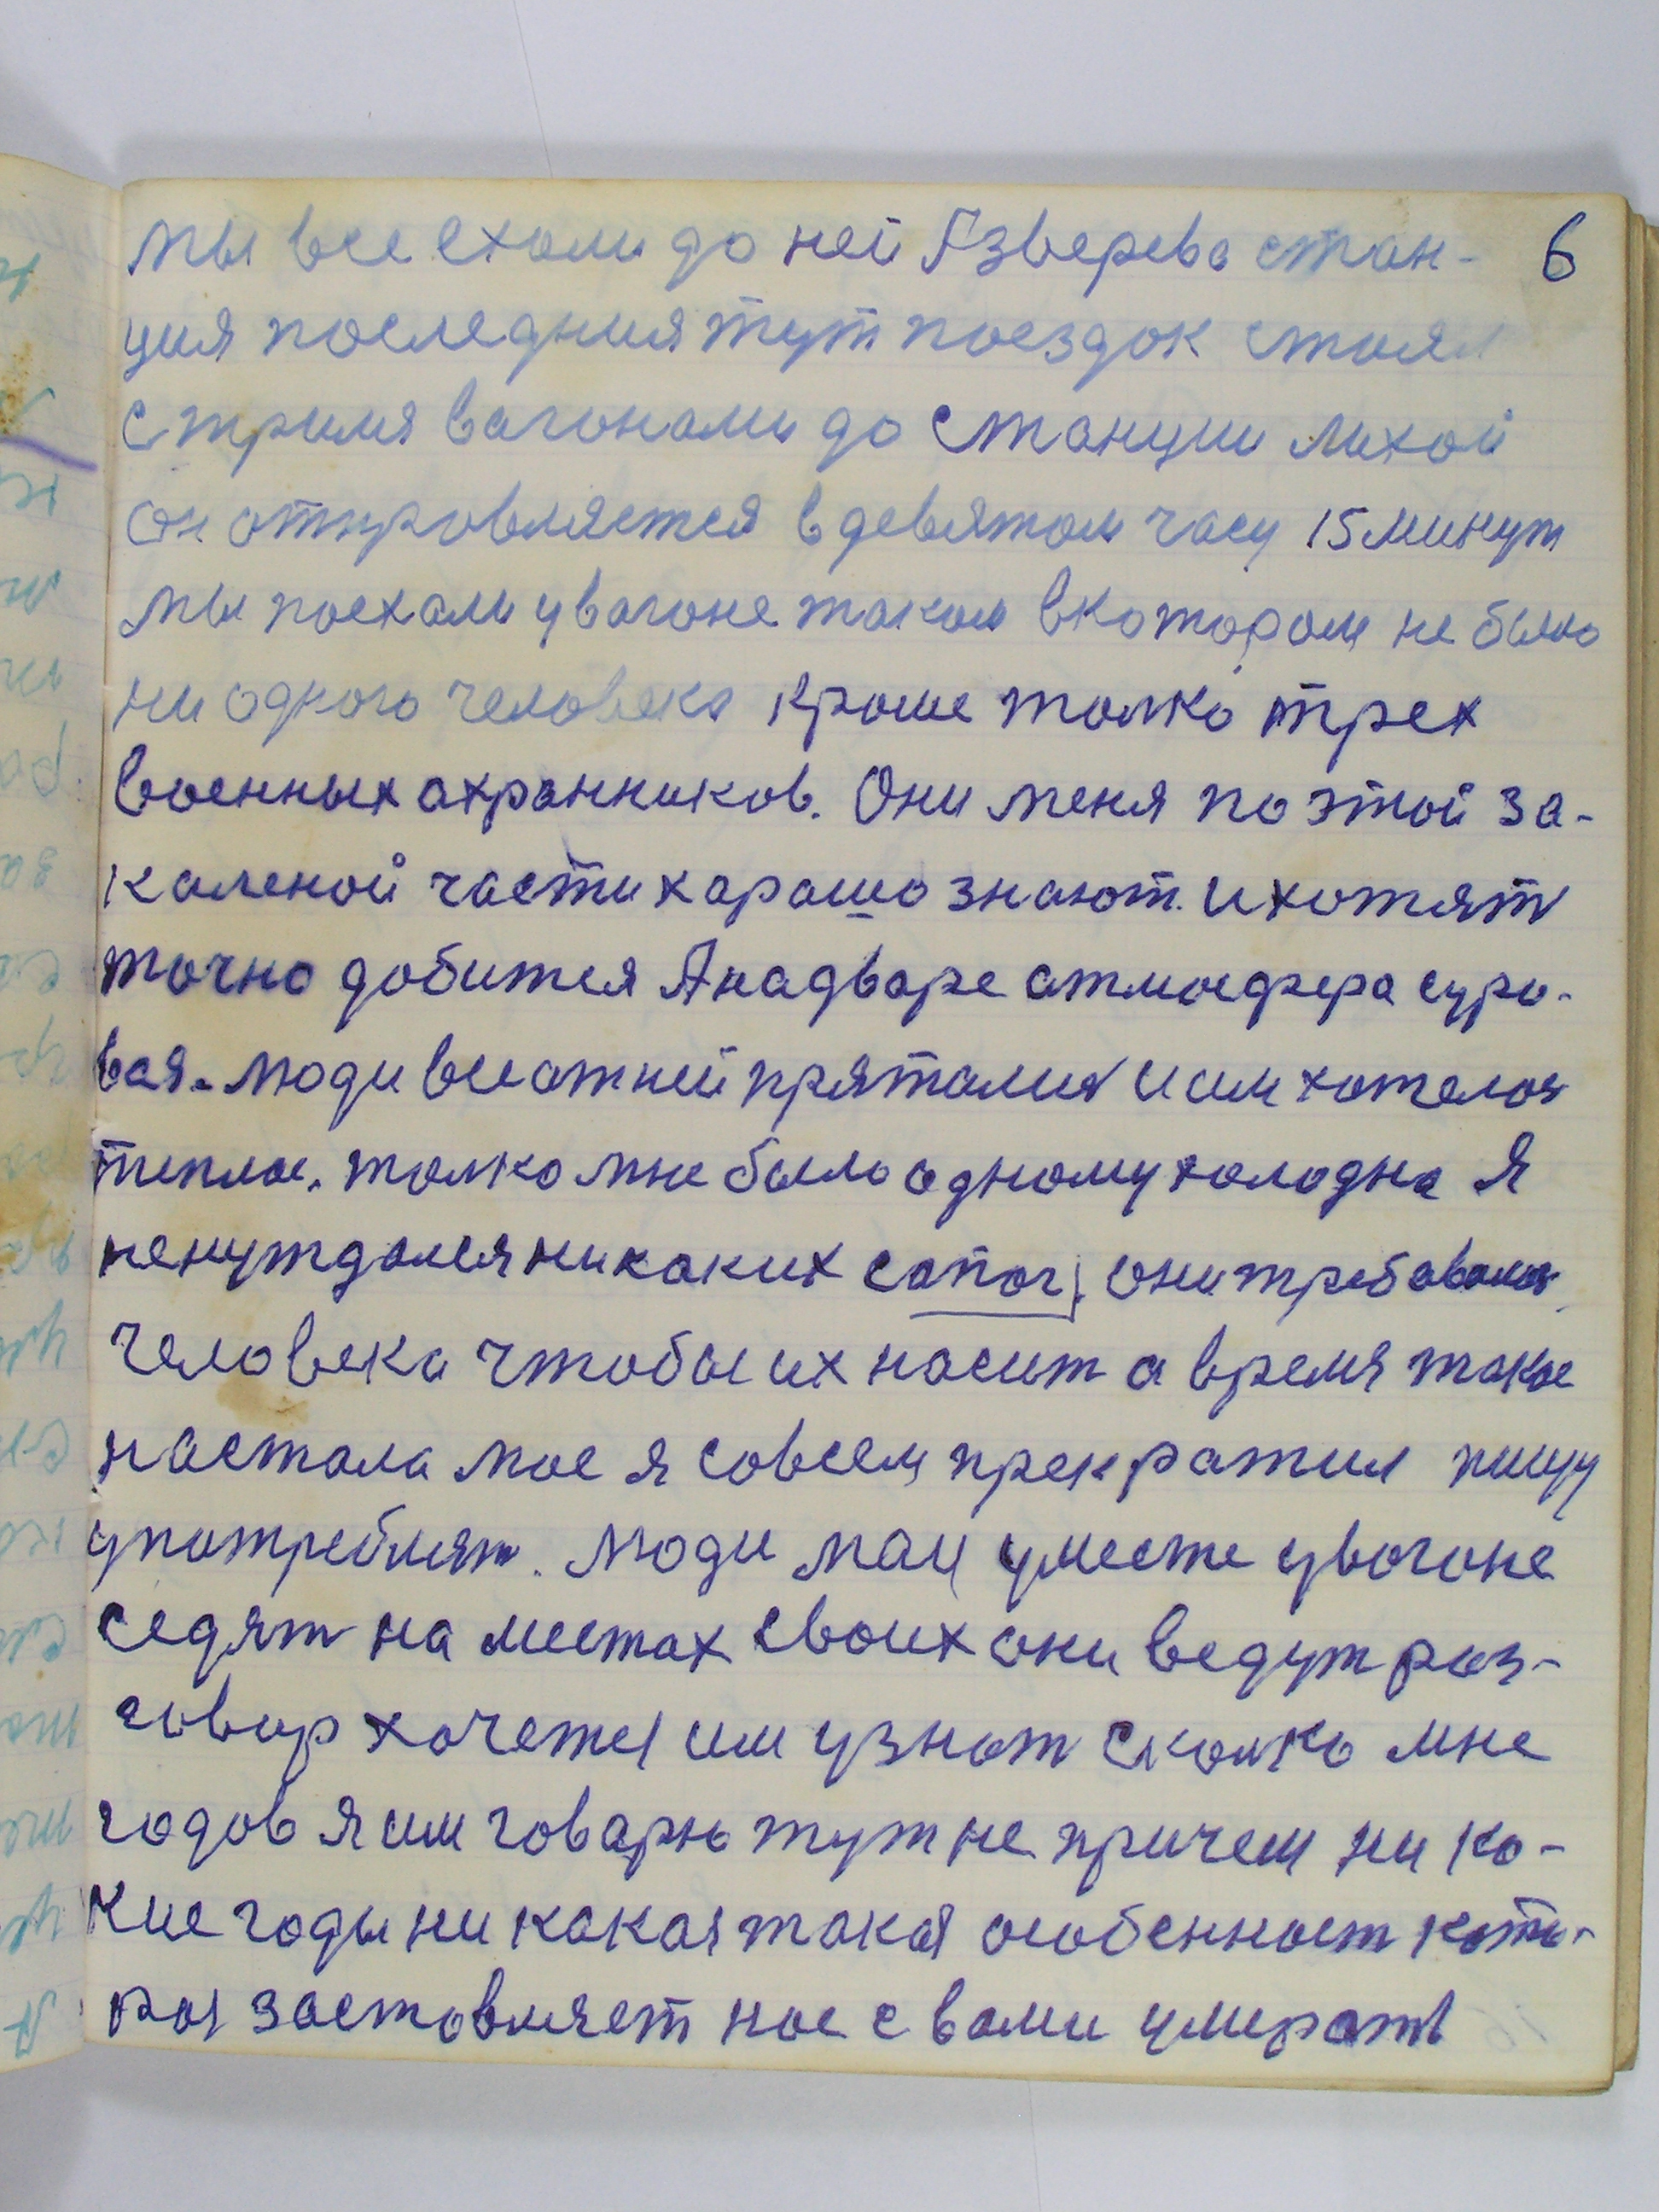 мы все ехали до ней Азверева стан- 6
ция последния тут поездок стоял
с тримя вагонами до станции лихой
он отпровляется в девятом часу 15 минут
мы поехали у вагоне таком в котором не было
ни одного человека кроме толко трех
военных ахранников. Они меня по этой за-
каленой части харашо знают. и хотят
точно добится А на дваре атмосфера суро-
вая. люди все от ней прятались и им хотелось
теплое. толко мне было одному холодна Я
ненуждался никаких сапог, они требовались
человека чтобы их насит а время такое
настала мое я совсем прекратил пищу
употреблят. люди маи уместе у вагоне
седят на местах своих они ведут раз-
говор хочется им узнат сколко мне
годов я им говарю тут не причем ни ка-
кие годы ни какая такая особенност кото-
рая заставляет нас с вами умирать